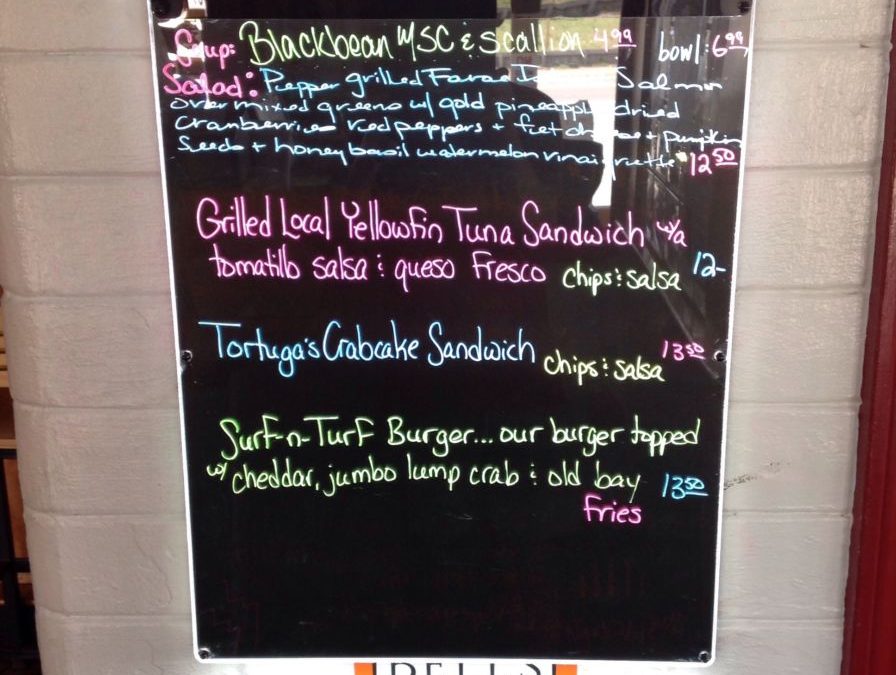 Soup: Blackbean w/ SC & scallion 4.99 bowl: 6.99
Salad: Pepper grilled Faroe Salmon
over mixed greens w/ gold pineapple, dried
cranberries red peppers + feta cheese + pumpkin
seeds + honey basil watermelon vinaigrette 12.50
Grilled Local Yellowfin Tuna Sandwich w/a
tomatillo salsa & queso Fresco chips & salsa 12-
Tortuga's Crabcake Sandwich chips & salsa 13.50
Surf-n-Turf Burger... our burger topped
w/ cheddar, jumbo lump crab & old bay 13.50
Fries